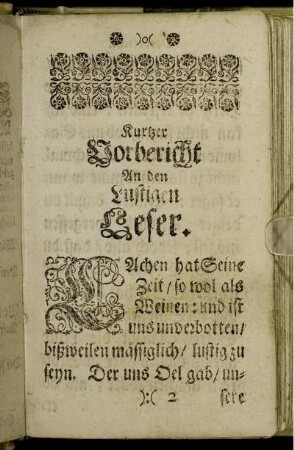 ):(
Kurtzer
Vorbericht
An den
Lustigen
Leser.
LAchen hat Seine
Zeit / so wol als
Weinen: und ist
uns unverbotten /
bißweilen mässiglich / lustig zu
seyn. Der uns Oel gab / un-
):( 2 sere